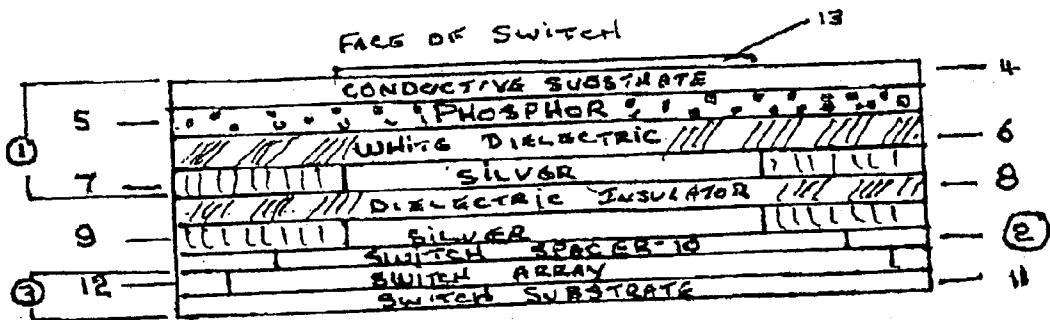 13
FACE OF SWITCH
4
CONDUCTIVE SUBSTRATE
5
PHOSPHOR
6
1
WHITE DIELECTRIC
7
SILVER
8
DIELECTRIC INSULATOR
9
SILVER
2
SWITCH SPACER-10
3
12
SWITCH ARRAY
11
SWITCH SUBSTRATE